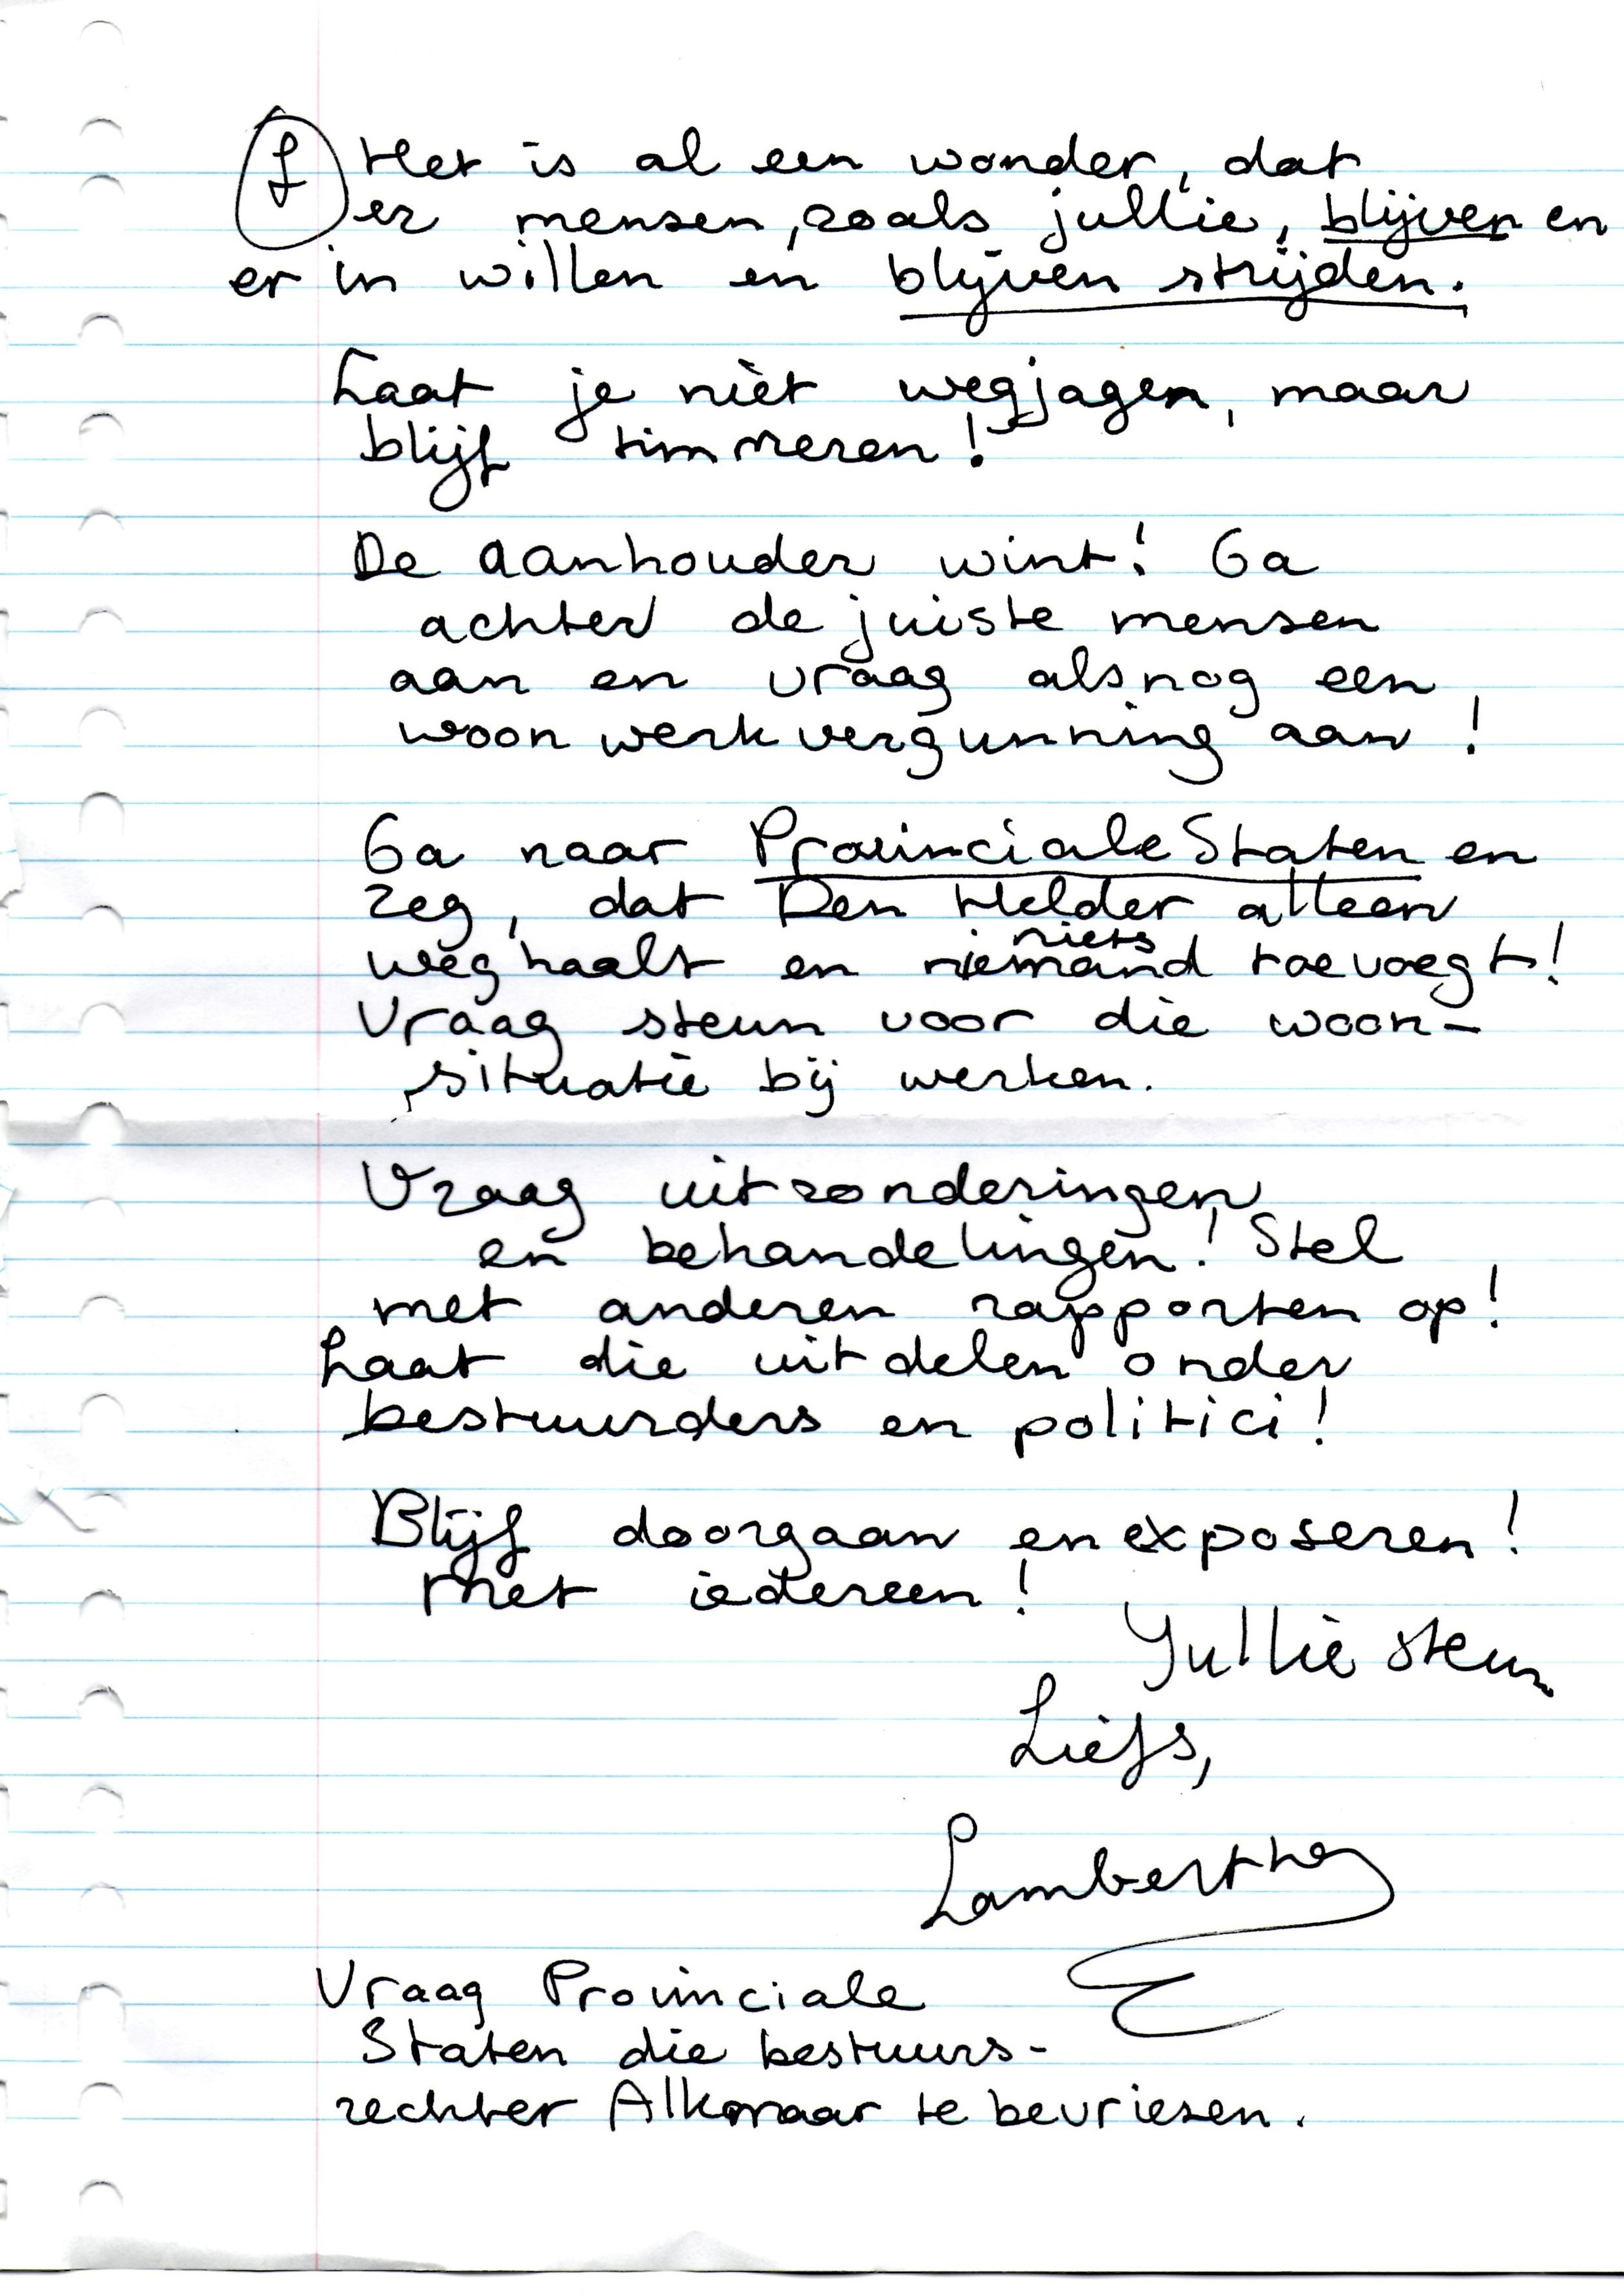 f Het is al een wonder, dat
er mensen, zoals jullie, blijven en
er in willen en blijven strijden.
Laat je niet wegjagen, maar
blijf timmeren!
De aanhouder wint! Ga
achter de juiste mensen
aan en vraag alsnog een
woonwerkvergunning aan!
Ga naar Provinciale Staten en
zeg, dat Den Helder alleen
niets
weghaalt en niemand toevoegt!
Vraag steun voor die woon-
situatie bij werken.
Vraag uitzonderingen
en behandelingen! Stel
met anderen rapporten op!
Laat die uitdelen onder
bestuurders en politici!
Blijf doorgaan en exposeren!
Met iedereen!
Jullie steun
Liefs,
Lamberthe
Vraag Provinciale
Staten die bestuurs-
rechter Alkmaar te bevriesen.